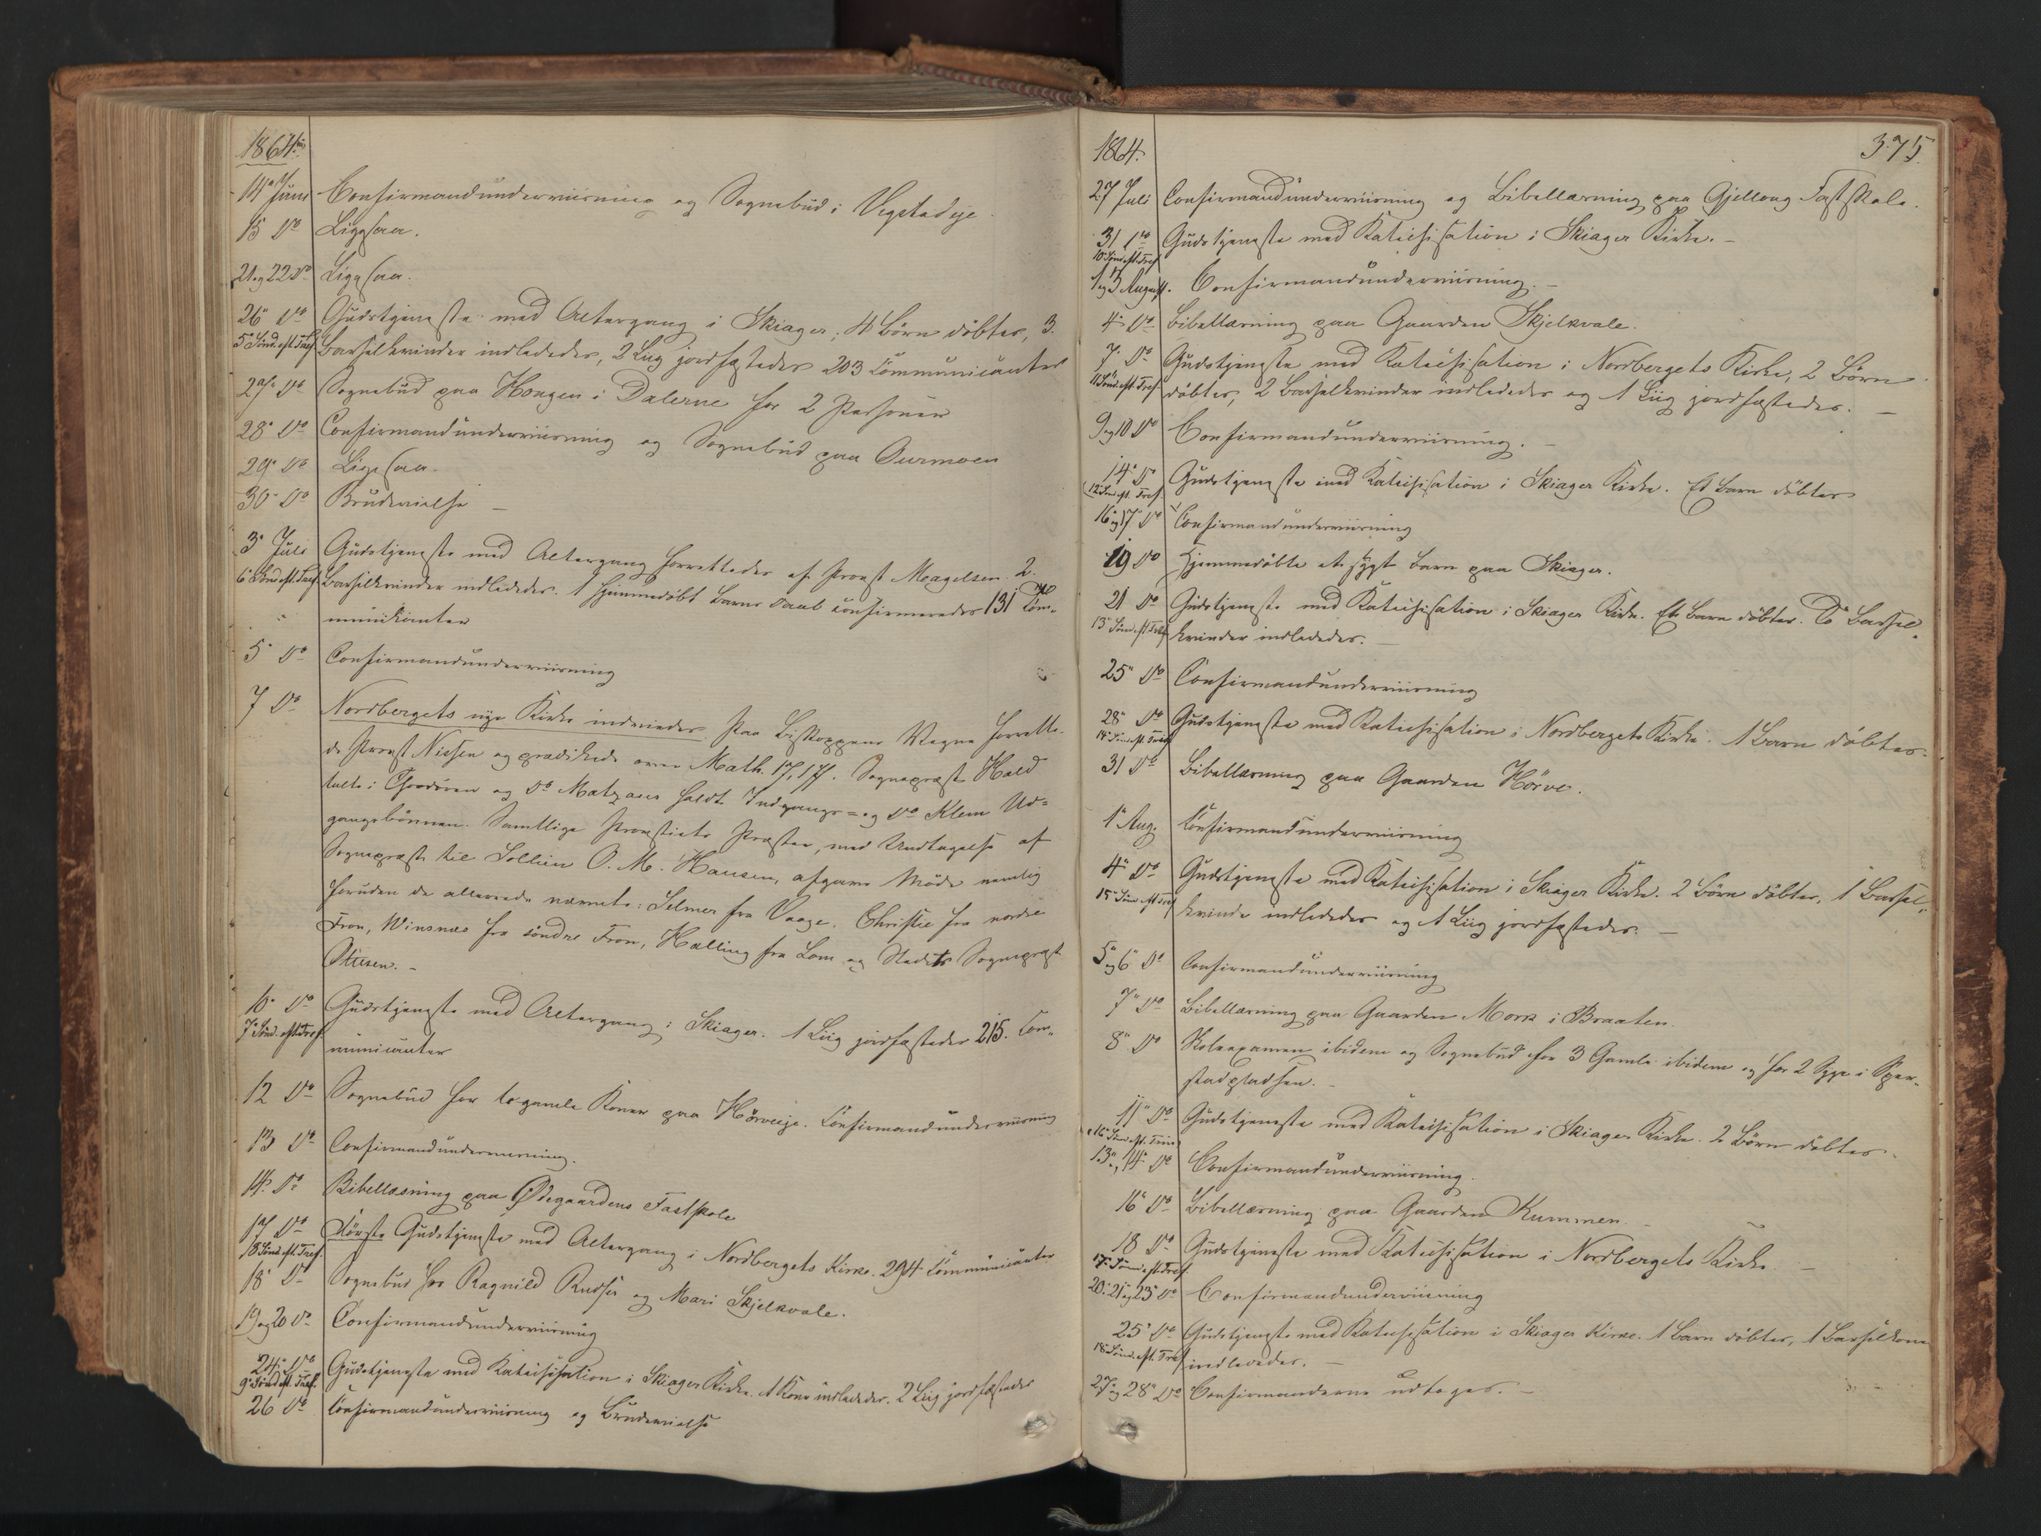 1864.
14 Juni Confirmandunderviisning og Sognebud i Vegstadeje.
15 Do Ligesaa.
21 og 22 Do Ligesaa.
26 Do Gudstjeneste med Altergang i Skiager, 4 Børn døbtes, 3
5 Sønd. eft. Tref. Barselkvinder indlededes, 2 Liig jordfæstedes 203 Communicanter
27 Do Sognebud paa Haugen i Dalerne for 2 Personer
28 Do Confirmandunderviisning og Sognebud paa Aurmoen
29 Do Ligesaa.
30 Do Brudevielse
3 Juli Gudstjeneste med Altergang forrettedes af Provst Magelsen. 2
6 Sønd. eft. Tref. Barselkvinder indlededes. 1 hjemmedøbt Barns Daab confirmeredes 131 Com-
municanter
5 Do Confirmandunderviisning
7 Do Nordbergets nye Kirke indviedes. Paa Biskoppens Vegne forrette-
de Provst Nissen og prædikede over Math. 17, 1 ff. Sognepræst Hald
talte i Chordøren og Do Matzau holdt Indgangs- og Do Klem Ud-
gangsbønnen. Samtlige Provstiets Præster, med Undtagelse af
Sognepræst til Sollien O. M. Hansen, afgave Møde nemlig
foruden de allerede nævnte: Selmer fra Vaage, Christie fra nordre
Fron, Winsnes fra søndre Fron, Halling fra Lom og Stedets Sognepræst
Ottesen.
10 Do Gudstjeneste med Altergang i Skiager. 1 Liig jordfæstedes 215 Com-
7 Sønd. eft. Tref. municanter
12 Do Sognebud for to gamle Koner paa Hørveeje. Confirmandunderviisning
13 Do Confirmandunderviisning.
14 Do Bibellæsning paa Ødegaardens Fastskole
17 Do Første Gudstjeneste med Altergang i Nordbergets Kirke. 294 Communicanter
8 Sønd. eft. Tref.
18 Do Sognebud for Ragnild Rudsø og Mari Skjelkvale.
19 og 20 Do Confirmandunderviisning
24 Do Gudstjeneste med Katechisation i Skiager Kirke. 1 Kone indlededes. 2 Liig jordfæstedes
9 Sønd. eft. Tref.
26 Do Confirmandunderviisning og Brudevielse
1864. 375.
27 Juli Confirmandunderviisning og Bibellæsning paa Gjellong Fastskole.
31 Do Gudstjeneste med Katechisation i Skiager Kirke.
10 Sønd. eft. Tref.
1 og 3 August. Confirmandunderviisning.
4 Do Bibellæsning paa Gaarden Skjelkvale.
7 Do Gudstjeneste med Katechisation i Nordbergets Kirke, 2 Børn
11 Sønd. eft. Tref. døbtes, 2 Barselkvinder indlededes og 1 Liig jordfæstedes.
9 og 10 Do Confirmandunderviisning.
14 Do Gudstjeneste med Katechisation i Skiager Kirke. Et Barn døbtes
12 Sønd. eft. Tref.
16 og 17 Do Confirmandunderviisning
19 Do Hjemmedøbte et sygt Barn paa Skiager.
21 Do Gudstjeneste med Katechisation i Skiager Kirke. Et Barn døbtes. To Barsel-
13 Sønd. eft. Tref. kvinder indlededes.
25 Do Confirmandunderviisning
28 Do Gudstjeneste med Katechisation i Nordbergets Kirke. 1 Barn døbtes.
14 Sønd. eft. Tref.
31 Do Bibellæsning paa Gaarden Hørve.
1 Aug. Confirmandunderviisning
4 Do Gudstjeneste med Katechisation i Skiager Kirke. 2 Børn døbtes, 1 Barsel-
15 Sønd. eft. Tref. kvinde indlededes og 1 Liig jordfæstedes.
5 og 6 Do Confirmandunderviisning
7 Do Bibellæsning paa Gaarden Mork i Braaten.
8 Do Skoleexamen ibidem og Sognebud for 3 Gamle ibidem og for 2 Syge i Sper-
stadpladsen.
11 Do Gudstjeneste med Katechisation i Skiager Kirke. 2 Børn døbtes.
16 Sønd. eft. Trin
13 og 14 Do Confirmandunderviisning.
16 Do Bibellæsning paa Gaarden Kummen.
18 Do Gudstjeneste med Katechisation i Nordbergets Kirke.
17 Sønd. eft. Tref.
20, 21 og 23 Do Confirmandunderviisning
25 Do Gudstjeneste med Katechisation i Skiager Kirke. 1 Barn døbtes, 1 Barselkone
18 Sønd. eft. Tref. indlededes.
27 og 28 Do Confirmanderne udtoges.